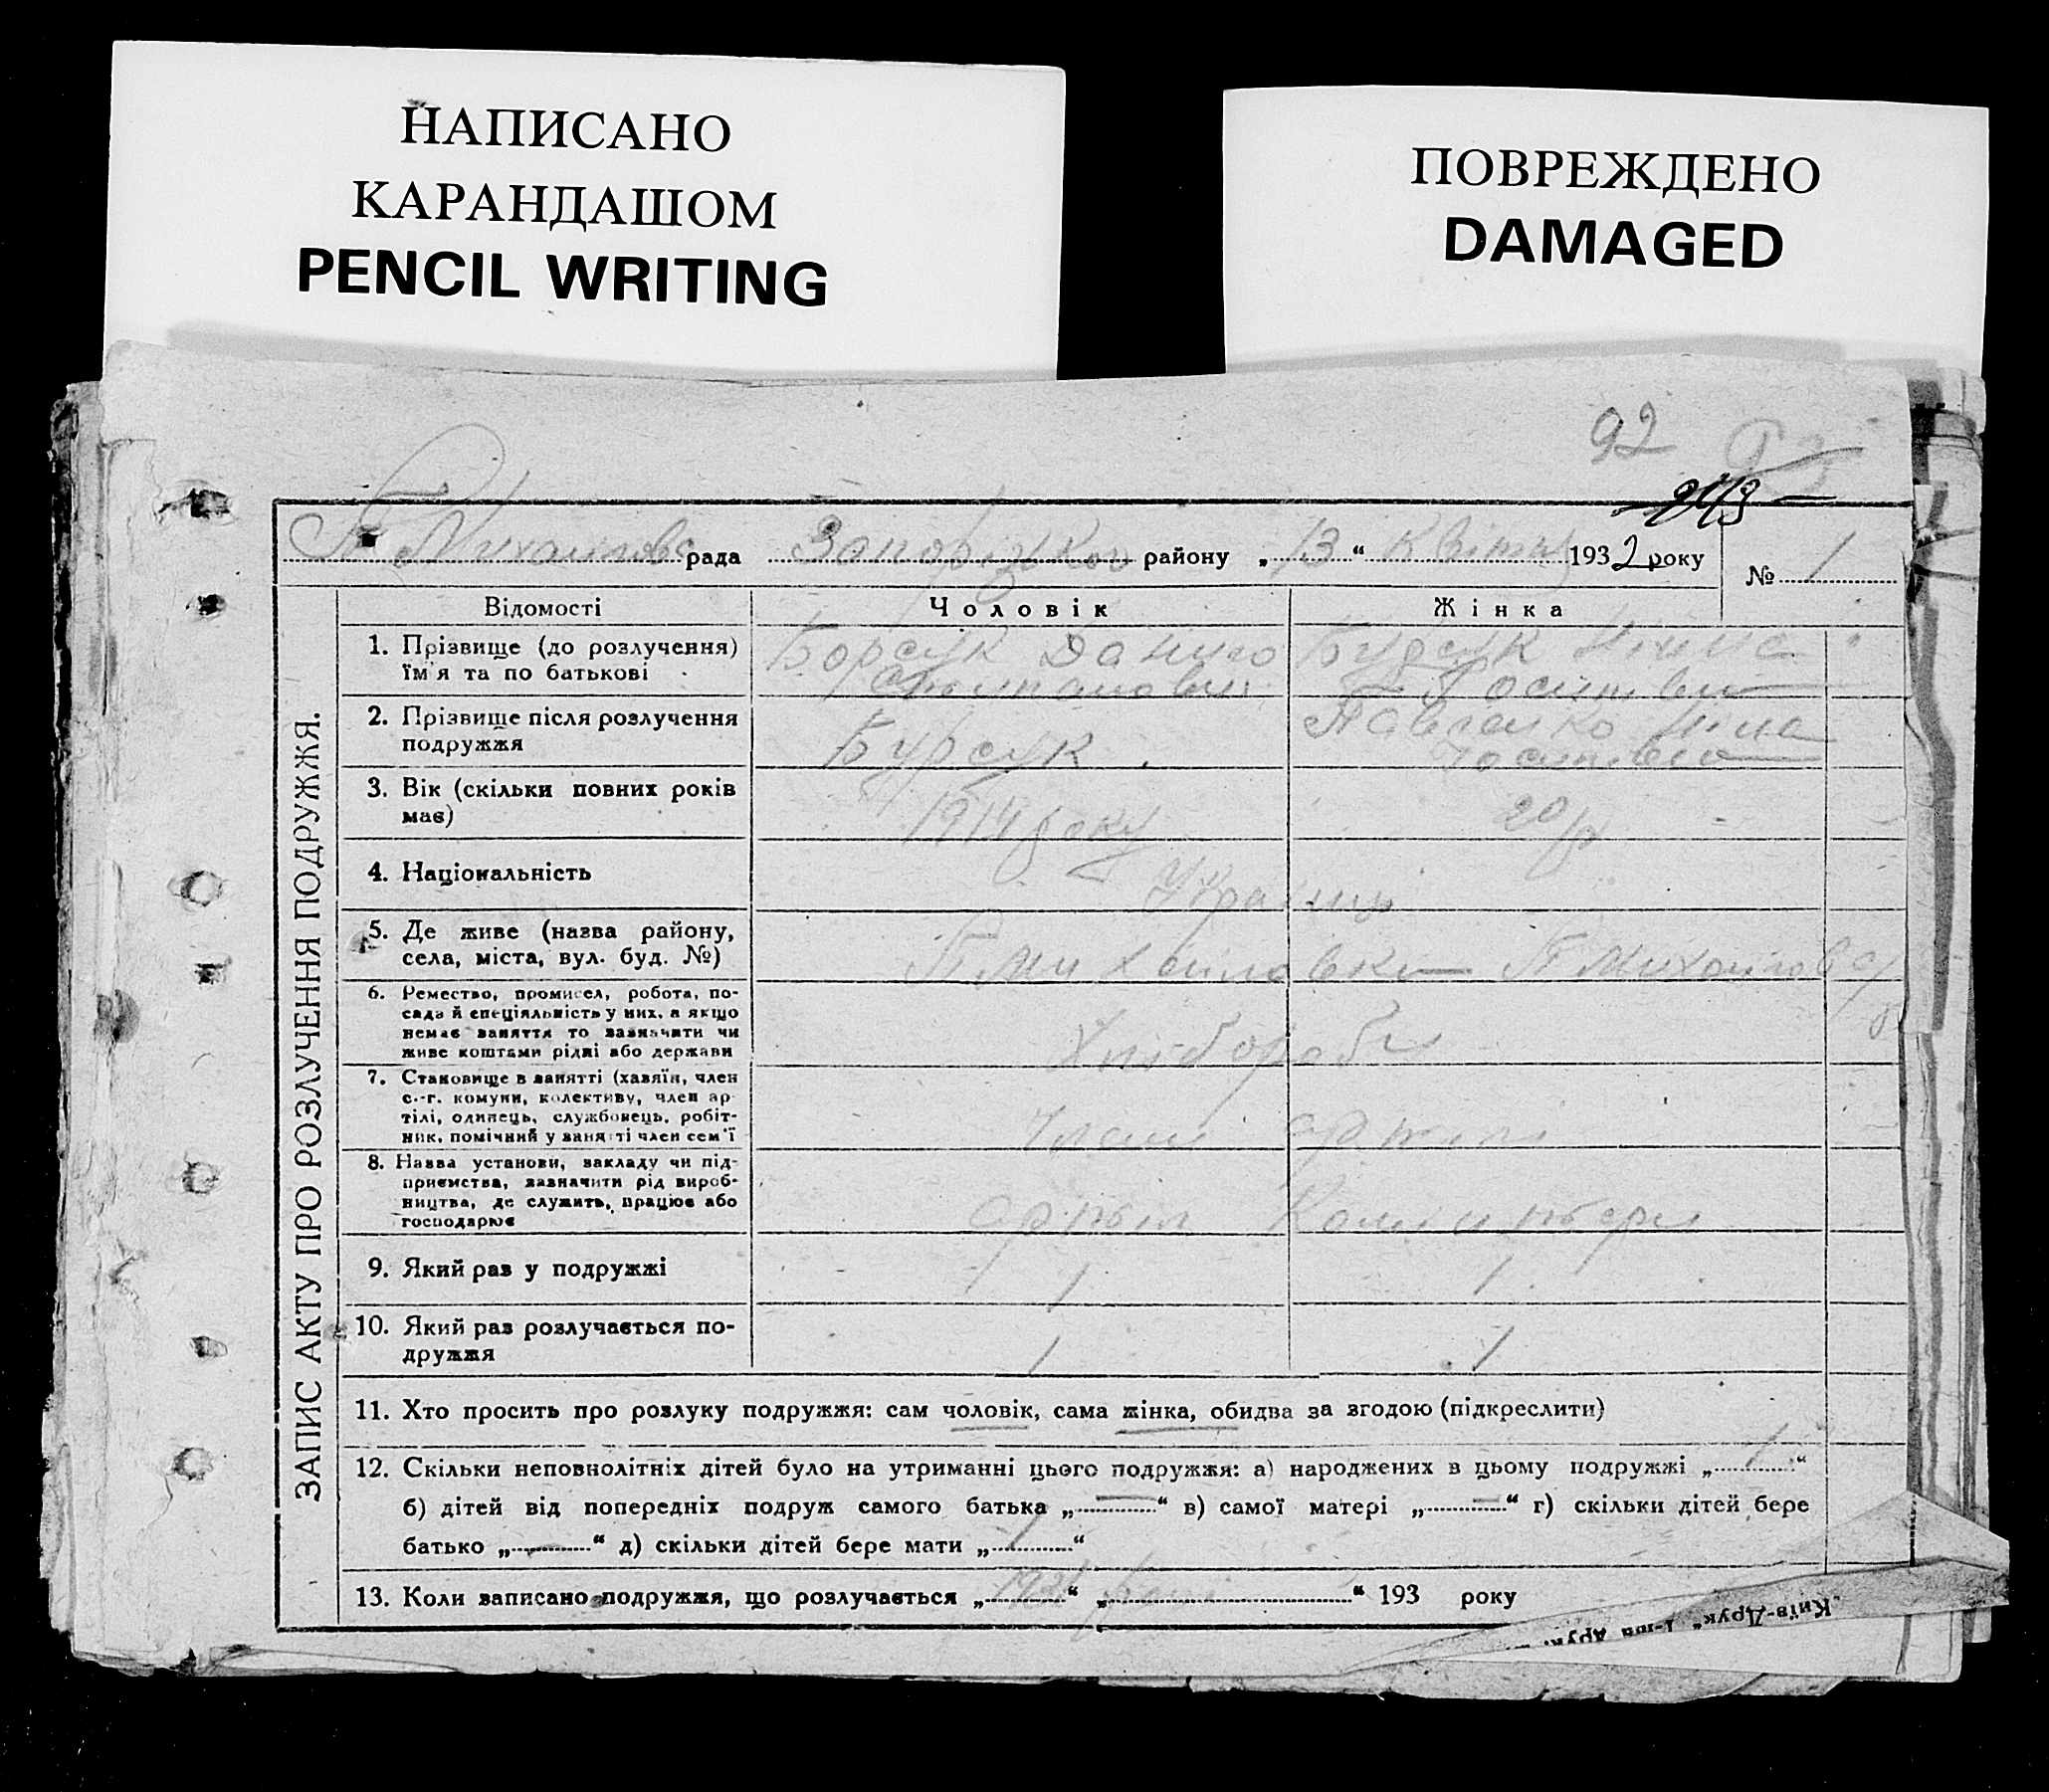 НАПИСАНО
КАРАНДАШОМ
PENCIL WRITING
ПОВРЕЖДЕНО
DAMAGED
92
рада району „ 13 “ Квітня 1932 року
№ 1
Відомості Чоловік Жінка
ЗАПИС АКТУ ПРО РОЗЛУЧЕННЯ ПОДРУЖЖЯ.
1. Прізвище (до розлучення) Борсук Данило
їм'я та по батькові
2. Прізвище після розлучення Павленко Ніна
подружжя Бурсук
3. Вік (скільки повних років 1914 року 20 р
має)
4. Національність
5. Де живе (назва району,
села, міста, вул. буд. №) П Михайловка П Михайловка
6. Ремество, промисел, робота, по-
сада й спеціяльність у них, а якщо
немає заняття то зазначити чи Хлібороби
живе коштами рідні або держави
7. Становище в занятті (хазяїн, член
с.-г. комуни, колективу, член ар-
тілі, одинець, службовець, робіт-
ник, помічний у занятті член сем'ї Члени артілі
8. Назва установи, закладу чи під-
приємства, зазначити рід вироб-
ництва, де служить, працює або артіль Комінтерн
господарює
9. Який раз у подружжі 1 1
10. Який раз розлучається по-
дружжя 1 1
11. Хто просить про розлуку подружжя: сам чоловік, сама жінка, обидва за згодою (підкреслити)
12. Скільки неповнолітніх дітей було на утриманні цього подружжя: а) народжених в цьому подружжі „ 1 “
б) дітей від попередніх подруж самого батька „ — “ в) самої матері „ — “ г) скільки дітей бере
батько „ — “ д) скільки дітей бере мати „ 1 “
13. Коли записано подружжя, що розлучається „ “ „ “ 193 року
„Київ-Друк“ 1-ша друк.